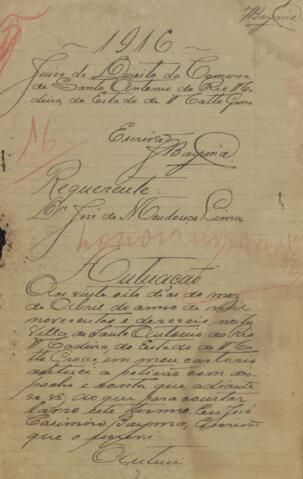 Bayma
1916
Juizo de Direito da Comarca
de Santo Antonio do Rio Ma-
deira, do Estado de Matto Grosso
16
Escrivão
Bayma
Requerente:
Dr. José de Mendonça Lima
Honorarios
Autuação
Aos vinte oito dias do mez
de Abril do anno de mil
novecentos e dezeseis, nesta
Villa de Santo Antonio do Rio
Madeira, do Estado de Matto
Grosso, em meu cartorio
autuei a petição com des-
pacho e conta que adiante
se vê; do que para constar
lavro este termo. Eu José
Casimiro Bayma, Escrivão
que o escrevi
Autuei